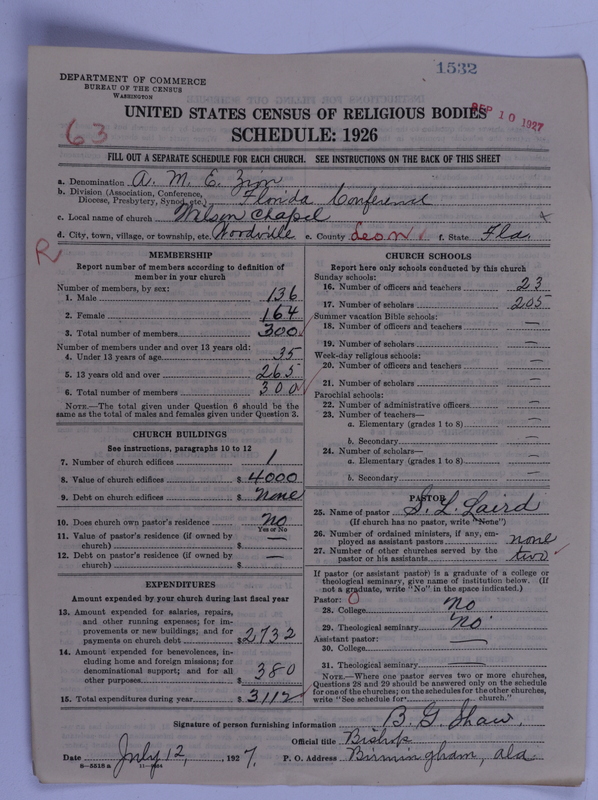 1532
DEPARTMENT OF COMMERCE
BUREAU OF THE CENSUS
WASHINGTON
SEP 10 1927
UNITED STATES CENSUS OF RELIGIOUS BODIES
63
SCHEDULE: 1926
FILL OUT A SEPARATE SCHEDULE FOR EACH CHURCH. SEE INSTRUCTIONS ON THE BACK OF THIS SHEET
a. Denomination A. M. E. Zion
b. Division (Association, Conference, Diocese, Presbytery, Synod, etc.) Florida Conference
c. Local name of church Wilson Chapel
d. City, town, village, or township, etc. Woodville e. County Leon f. State Fla.
R
MEMBERSHIP
Report number of members according to definition of member in your church
Number of members, by sex:
1. Male 136
2. Female 164
3. Total number of members 300
Number of members under and over 13 years old:
4. Under 13 years of age 35
5. 13 years old and over 265
6. Total number of members 300
NOTE.—The total given under Question 6 should be the same as the total of males and females given under Question 3.
CHURCH BUILDINGS
See instructions, paragraphs 10 to 12
7. Number of church edifices 1
8. Value of church edifices $ 4000
9. Debt on church edifices $ none
10. Does church own pastor's residence no
Yes or No
11. Value of pastor's residence (if owned by church) $ —
12. Debt on pastor's residence (if owned by church) $ —
EXPENDITURES
Amount expended by your church during last fiscal year
13. Amount expended for salaries, repairs, and other running expenses; for improvements or new buildings; and for payments on church debt $ 2,732
14. Amount expended for benevolences, including home and foreign missions; for denominational support; and for all other purposes $ 380
15. Total expenditures during year $ 3112
CHURCH SCHOOLS
Report here only schools conducted by this church
Sunday schools:
16. Number of officers and teachers 23
17. Number of scholars 205
Summer vacation Bible schools:
18. Number of officers and teachers —
19. Number of scholars —
Week-day religious schools:
20. Number of officers and teachers —
21. Number of scholars —
Parochial schools:
22. Number of administrative officers —
23. Number of teachers—
a. Elementary (grades 1 to 8) —
b. Secondary —
24. Number of scholars—
a. Elementary (grades 1 to 8) —
b. Secondary —
PASTOR
25. Name of pastor S. L. Laird
(If church has no pastor, write "None")
26. Number of ordained ministers, if any, employed as assistant pastors none
27. Number of other churches served by the pastor or his assistants two
If pastor (or assistant pastor) is a graduate of a college or theological seminary, give name of institution below. (If not a graduate, write "No" in the space indicated.)
Pastor: 0
28. College no
29. Theological seminary no
Assistant pastor:
30. College —
31. Theological seminary —
NOTE.—Where one pastor serves two or more churches, Questions 28 and 29 should be answered only on the schedule for one of the churches; on the schedules for the other churches, write "See schedule for church."
Signature of person furnishing information B. G. Shaw.
Official title Bishop
Date July 12, 1927. P. O. Address Birmingham, Ala.
8—5518 a